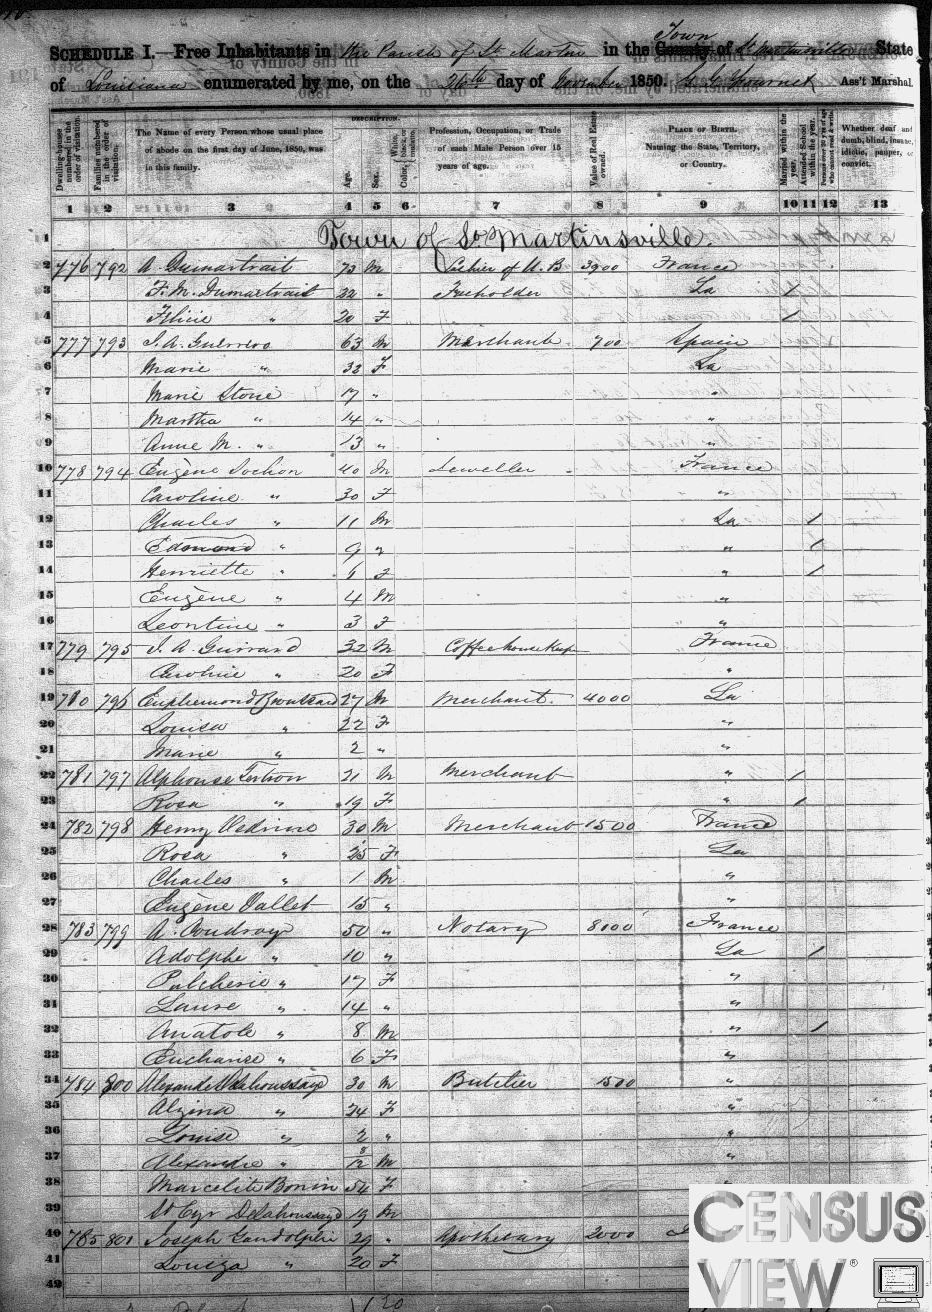 SCHEDULE I.—Free Inhabitants in the Parish of St Martin in the Town County of St Martinsville State
of Louisiana enumerated by me, on the 26th day of November 1850. Ass't Marshal.
Dwelling-houses numbered in the order of visitation.
Families numbered in the order of visitation.
The Name of every Person whose usual place of abode on the first day of June, 1850, was in this family.
DESCRIPTION.
Age.
Sex.
White, black, or mulatto. Color,
Profession, Occupation, or Trade of each Male Person over 15 years of age.
Value of Real Estate owned.
PLACE OF BIRTH. Naming the State, Territory, or Country.
Married within the year.
Attended School within the year.
Persons over 20 y'rs of age who cannot read & write.
Whether deaf and dumb, blind, insane, idiotic, pauper, or convict.
1 2 3 4 5 6 7 8 9 10 11 12 13
1 Town of St Martinsville.
2 776 792 A. Dumartrait 73 M Cashier of U.B 3900 France
3 F. M. Dumartrait 22 " Freeholder La /
4 Felicie " 20 F /
5 777 793 J. A. Guerrero 63 M Merchant 700 Spain
6 Marie " 32 F La
7 Marie Storie 17 " "
8 Martha " 14 " "
9 Anne M. " 13 " "
10 778 794 Eugène Sochon 40 M Jeweller France
11 Caroline " 30 F "
12 Charles " 11 M La /
13 Edmond " 9 " " /
14 Henriette " 6 F " /
15 Eugène " 4 M "
16 Leontine " 3 F "
17 779 795 J. A. Guirard 32 M Coffeehouse Keep France
18 Caroline " 20 F "
19 780 796 Euphemond Broussard 27 M Merchant. 4000 La
20 Louisa " 22 F "
21 Marie " 2 " "
22 781 797 Alphonse 21 M Merchant " /
23 Rosa " 19 F " /
24 782 798 Henry Vedrine 30 M Merchant 1500 France
25 Rosa " 25 F La
26 Charles " 1 M "
27 Eugene Vallet 15 " "
28 783 799 A. 50 " Notary 8000 France
29 Adolphe " 10 " La /
30 Pulcherie " 17 F "
31 Laure " 14 " "
32 Anatole " 8 M " /
33 Eucharise " 6 F "
34 784 800 Alexandre Delahoussaye 30 M Butcher 1500 "
35 Alzina " 24 F "
36 Louise " 2 " "
37 Alexandre " 8/12 M "
38 Marcelite Bonin 54 F
39 St Cyr Delahoussaye 19 M
40 785 801 Joseph Gandolphe 29 " Apothecary 2000
41 Louiza " 20 F
42
CENSUS
VIEW®